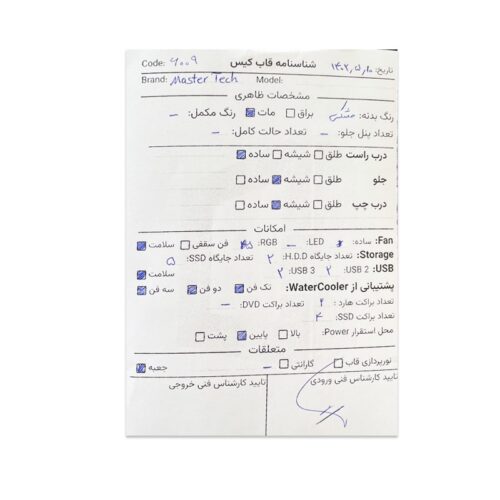 شناسنامه قاب کیس
Code: 9009
تاریخ: ۱۴۰۲,۵,۲۰
Brand: Master Tech Model:
مشخصات ظاهری
رنگ بدنه: مشکی براق☐ مات☑ رنگ مکمل: –
تعداد پنل جلو: – تعداد حالت کامل: –
درب راست طلق☐ شیشه☐ ساده☑
جلو طلق☐ شیشه☑ ساده☐
درب چپ طلق☐ شیشه☑ ساده☐
امکانات
Fan: ساده: LED: – RGB: فن سقفی☐ سلامت☑
Storage: تعداد جایگاه H.D.D: ۲ تعداد جایگاه SSD: ۵
USB: USB 2: ۲ USB 3: ۲ سلامت☑
پشتیبانی از WaterCooler: تک فن☑ دو فن☑ سه فن☑
تعداد براکت هارد: ۲ تعداد براکت DVD: –
تعداد براکت SSD: ۴
محل استقرار Power: بالا☐ پایین☑ پشت☐
متعلقات
نورپردازی قاب☐ گارانتی☐ – جعبه☑
تایید کارشناس فنی ورودی تایید کارشناس فنی خروجی